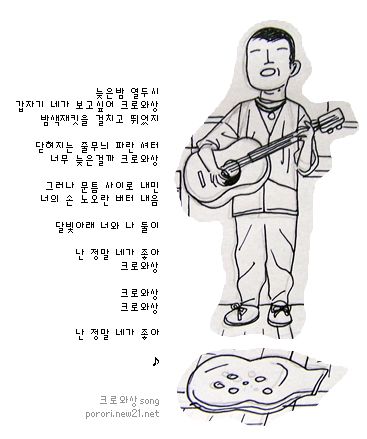 늦은밤 열두시
갑자기 네가 보고싶어 크로와상
밤색재킷을 걸치고 뛰었지
닫혀지는 줄무늬 파란 셔터
너무 늦은걸까 크로와상
그러나 문틈 사이로 내민
너의 손 노오란 버터 내음
달빛아래 너와 나 둘이
난 정말 네가 좋아
크로와상
크로와상
크로와상
난 정말 네가 좋아
♪
크로와상 song
porori.new21.net